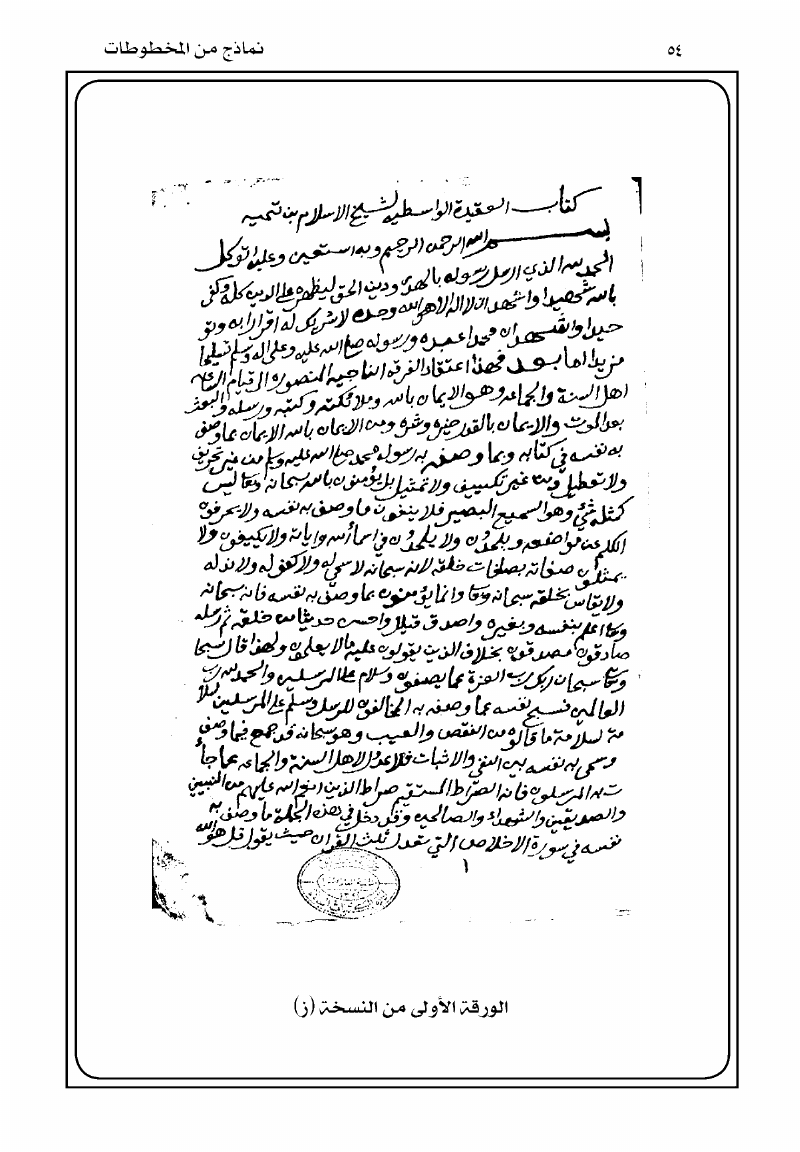 ٥٤
نماذج من المخطوطات
كتاب العقيدة الواسطيه لشيخ الاسلام بن تيميه
بسم الله الرحمن الرحيم وبه استعين وعليه اتوكل
الحمد لله الذي ارسل رسوله بالهدى ودين الحق ليظهره على الدين كله وكفى
بالله شهيدا واشهد ان لا اله الا هو الله وحده لا شريك له اقرارا به وتو
حيدا واشهد ان محمدا عبده ورسوله صلى الله عليه وعلى اله وسلم تسليما
مزيدا اما بعد فهذا اعتقاد الفرقه الناجيه المنصوره الى قيام الساعه
اهل السنة والجماعه وهو الايمان بالله وملائكته وكتبه ورسله والبعث
بعد الموت والايمان بالقدر خيره وشره ومن الايمان بالله الايمان بما وصف
به نفسه في كتابه وبما وصفه به رسوله محمد صلى الله عليه وسلم من غير تحريف
ولا تعطيل ومن غير تكييف ولا تمثيل بل يؤمنون بالله سبحانه وتعا ليس
كمثله شئ وهو السميع البصير فلا ينفون ما وصف به نفسه ولا يحرفون
الكلم عن مواضعه ولا يلحدون في اسماء الله واياته ولا يكيفون ولا
يمثلون صفاته بصفات خلقه لانه سبحانه لا سمي له ولا كفو له ولا ند له
ولا يقاس بخلقه سبحانه وتعا وانما يؤمنون بما وصف به نفسه فانه سبحانه
وتعا اعلم بنفسه وبغيره واصدق قيلا واحسن حديثا من خلقه ثم رسله
صادقون مصدقون بخلاف الذين يقولون عليه ما لا يعلمون ولهذا قال سبحا
وتعا سبحان ربك رب العزة عما يصفون وسلام على المرسلين والحمد لله رب
العالمين فسبح نفسه عما وصفه به المخالفون للرسل وسلم على المرسلين
لسلامة ما قالوه من النقص والعيب وهو سبحانه قد جمع فيما وصف
وسمى به نفسه بين النفي والاثبات فلا عدول لاهل السنة والجماعه عما جا
ت به المرسلون فانه الصراط المستقيم صراط الذين انعم الله عليهم من النبيين
والصديقين والشهداء والصالحين وقد دخل في هذه الجملة ما وصف به
نفسه في سورة الاخلاص التي تعدل ثلث القران حيث يقول قل هو الله
١
الورقة الأولى من النسخة (ز)